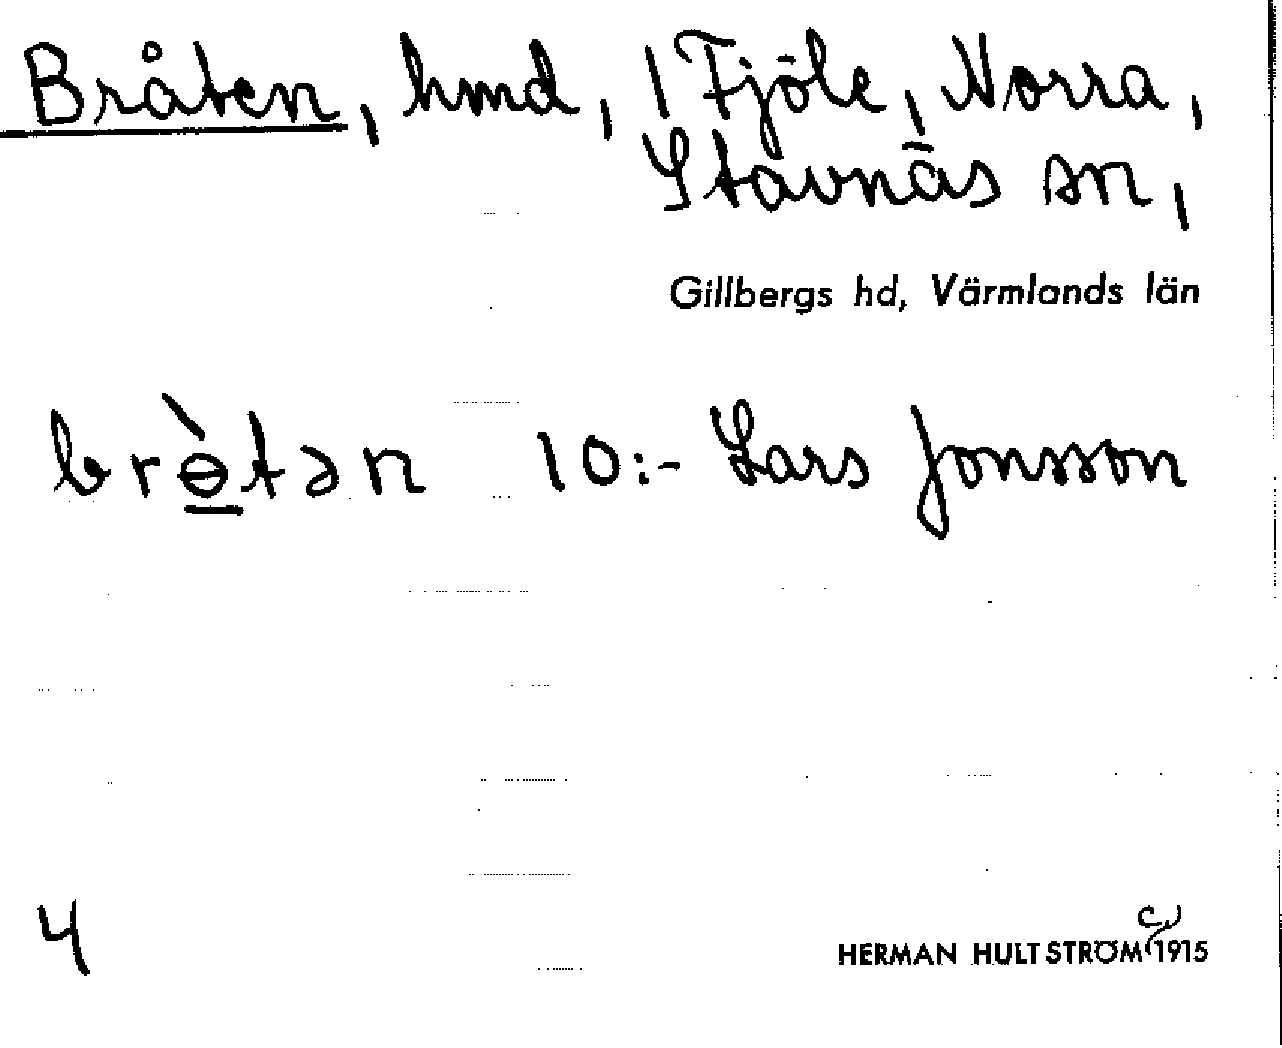 Bråten, hmd, 1 Fjöle, Norra,
Stavnäs sn,
Gillbergs hd, Värmlands län
brɵ̠̀tən 10:- Lars Jonsson
4
c)
HERMAN HULTSTRÖM 1915